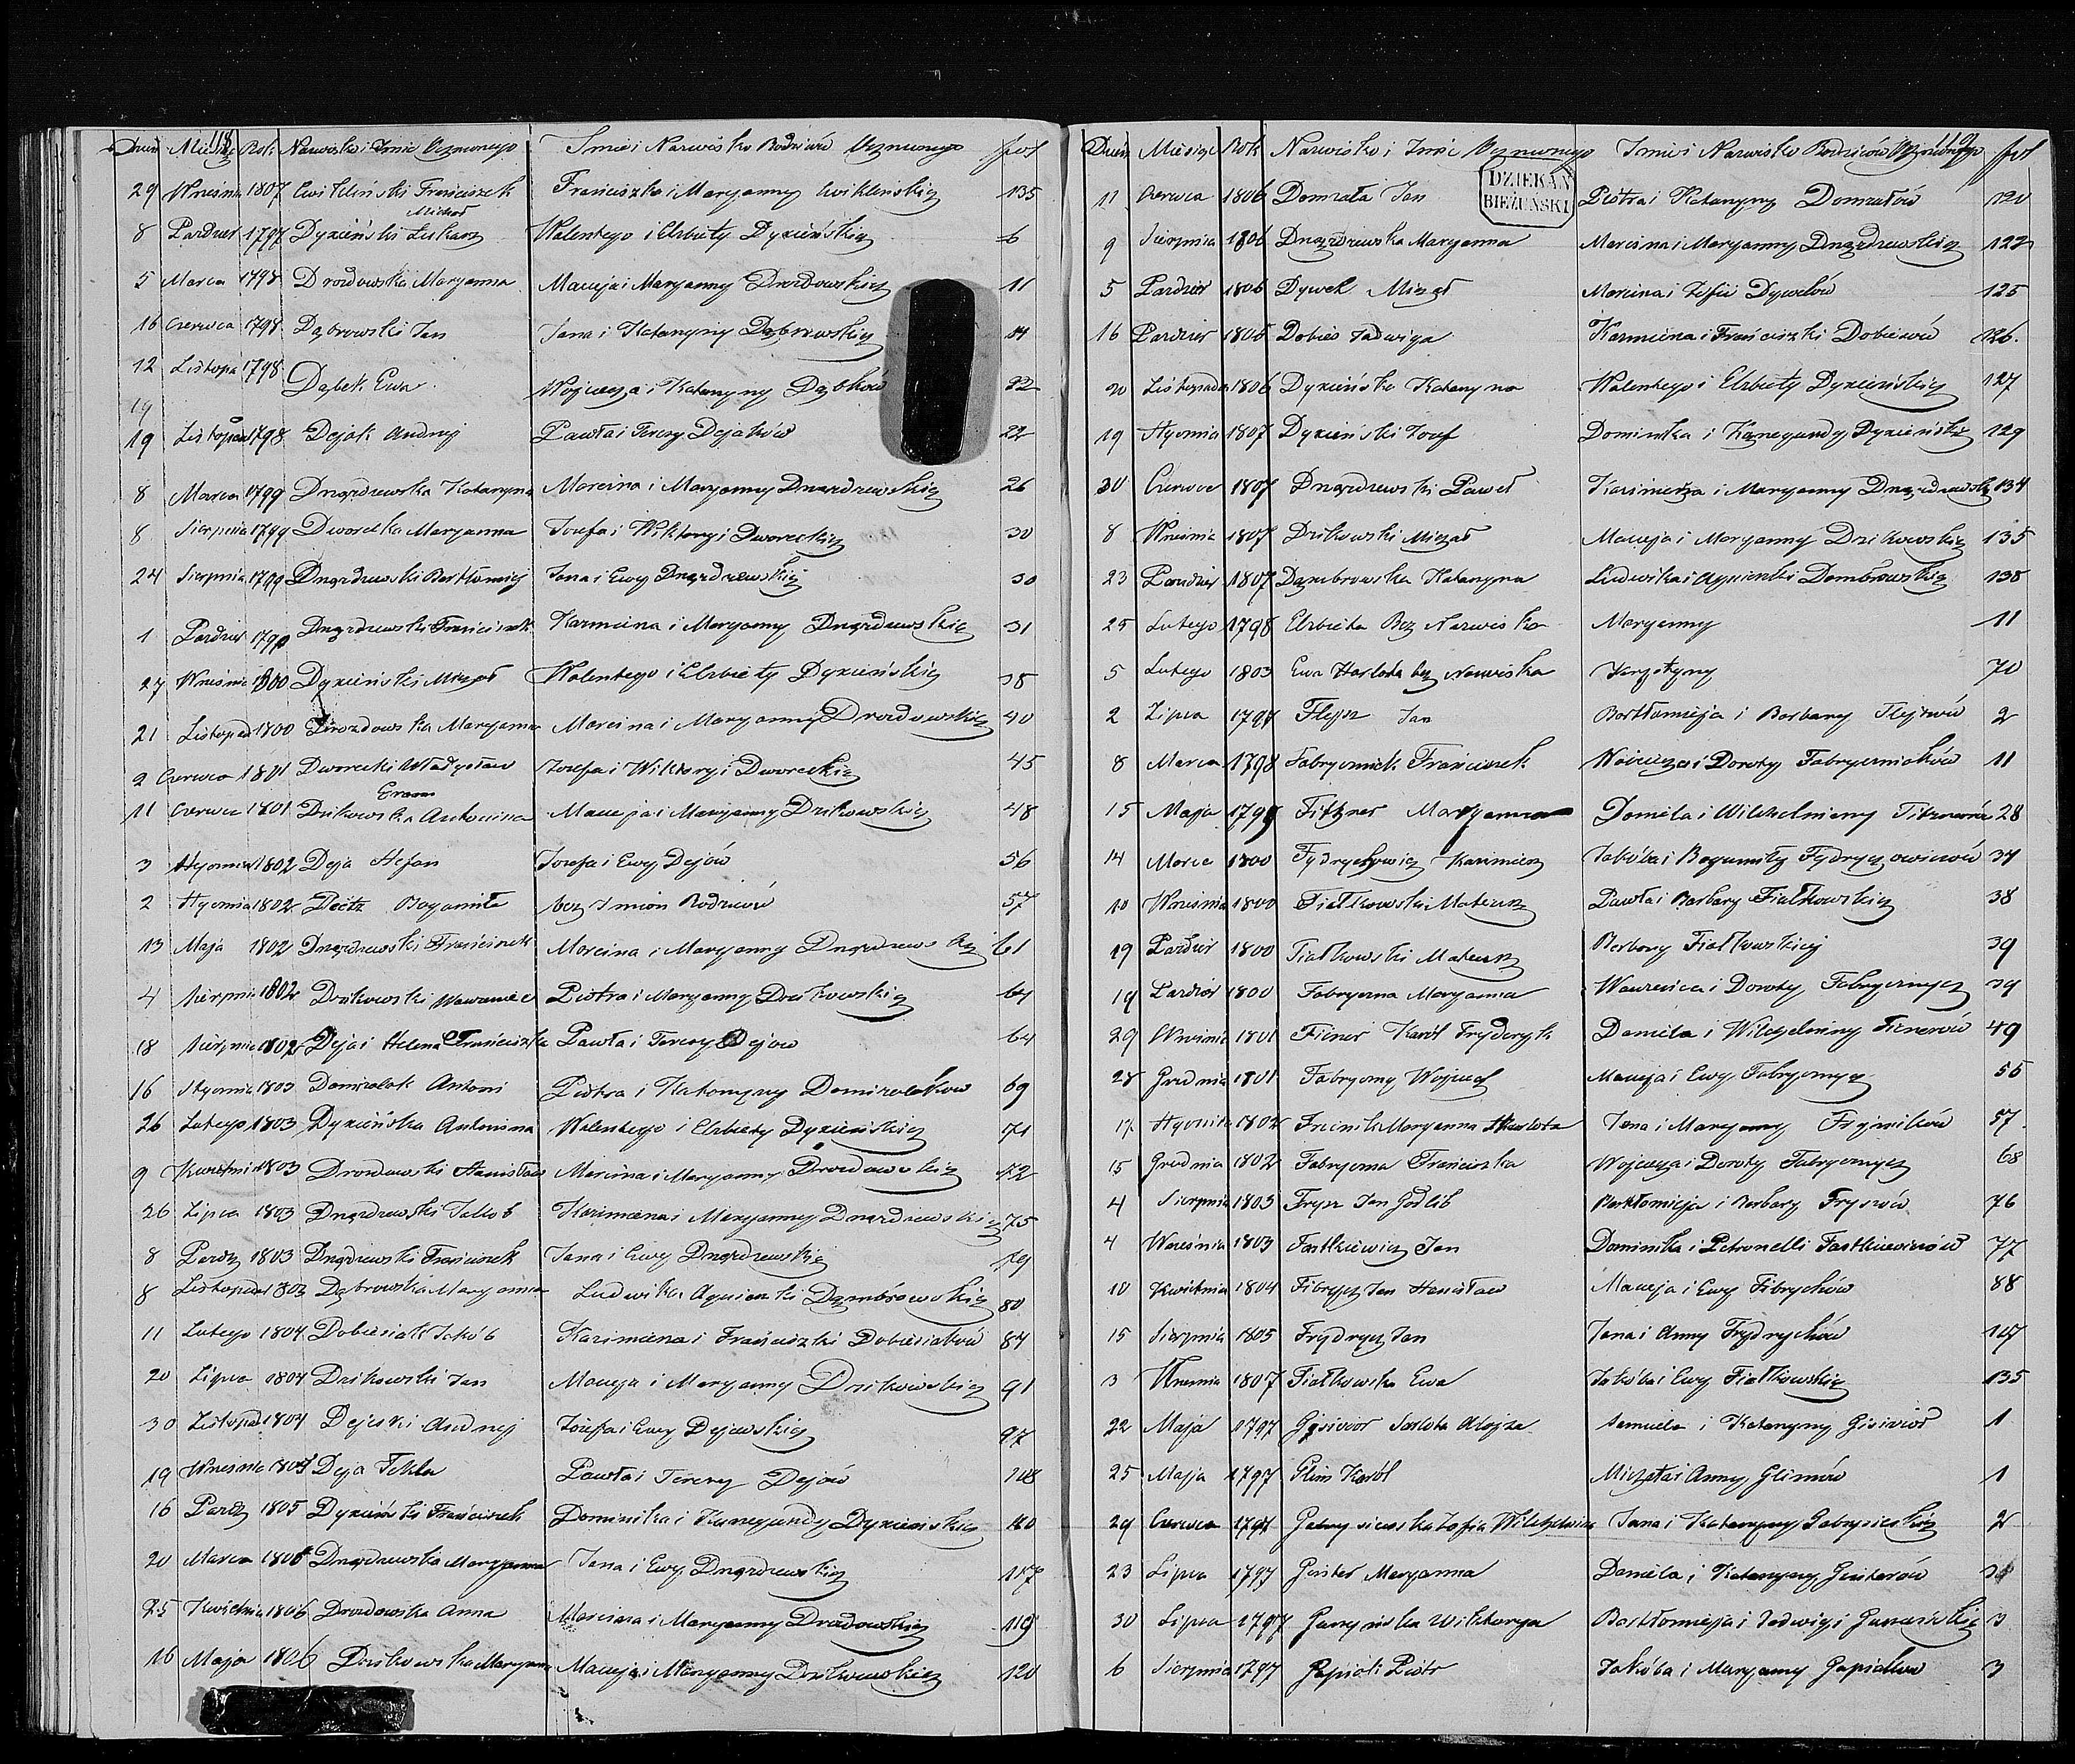 118
Dzień Miesiąc Rok Nazwisko i Imie Ucznonego Imie i Nazwisko Rodziców fol
29 Września 1807 Ćwikliński Franciszek Franciszka i Maryanny Ćwiklińskich 135
Michał
8 Paździer 1797 Dyzieński Łukasz Walentego i Elzbiety Dyzieńskich 6
5 Marca 1798 Drozdowska Maryanna Macieja i Maryanny Drozdowskich 11
16 Czerwca 1798 Dąbrowski Jan Jana i Katarzyny Dąbrowskich 14
12 Listopa 1798 Dąbek Ewa Wojciecha i Katarzyny Dąbków 22
19
19 Listopad 1798 Dejak Andrzej Pawła i Teresy Dejaków 22
8 Marca 1799 Drązdzewska Katarzyna Marcina i Maryanny Drązdzewskich 26
8 Sierpnia 1799 Dworecka Maryanna Jozefa i Wiktoryi Dworeckich 30
24 Sierpnia 1799 Drązdzewski Bartłomiej Jana i Ewy Drązdzewskich 30
1 Paździer 1799 Drązdzewski Franciszek Kazmierza i Maryanny Drązdzewskich 31
27 Wrześnie 1800 Dyzieński Michał Walentego i Elzbiety Dyzieńskich 38
21 Listopad 1800 Drozdowska Maryanna Marcina i Maryanny Drozdowskich 40
2 Czerwca 1801 Dworecki Władysław Jozefa i Wiktoryi Dworeckich 45
11 Czerwca 1801 Dzikowska Antonina Macieja i Maryanny Dzikowskich 48
3 Stycznia 1802 Deja Stefan Jozefa i Ewy Dejów 56
2 Stycznia 1802 Deitz Bogumiła bez Imion Rodziców 57
13 Maja 1802 Drązdzewski Franciszek Marcina i Maryanny Drązdzewskich 61
4 Sierpnia 1802 Dzikowski Wawrzeniec Piotra i Maryanny Dzikowskich 64
18 Sierpnia 1802 Deja Helena Franciszka Pawła i Teresy Dejow 64
16 Stycznia 1803 Domzalak Antoni Piotra i Katarzyny Domzalaków 69
26 Lutego 1803 Dyzieńska Antonina Walentego i Elzbiety Dyzieńskich 71
9 Kwietni 1803 Drozdowski Stanisław Marcina i Maryanny Drozdowskich 72
26 Lipca 1803 Drązdzewski Jakob Kazimierza i Maryanny Drązdzewskich 75
8 Paźdz 1803 Drązdzewski Franciszek Jana i Ewy Drązdzewskich 79
8 Listopad 1803 Dąbrowska Maryanna Ludwika Agnieszki Dąmbrowskich 80
11 Lutego 1804 Dobiesiak Jakób Kazimierza i Franciszki Dobiesiaków 84
20 Lipca 1804 Dzikowski Jan Macieja i Maryanny Dzikowskich 91
30 Listopad 1804 Dejeski Andrzej Józefa i Ewy Dejewskich 97
19 Wrzesnia Deja Tekla Pawła i Teresy Dejów 108
16 Paźdz 1805 Dyzieński Franciszek Dominika i Kunegundy Dyzieńskich 110
20 Marca 1806 Drązdzewska Maryanna Jana i Ewy Drązdzewskich 117
25 Kwietnia 1806 Drozdowska Anna Marcina i Maryanny Drozdowskich 119
16 Maja 1806 Dzikowska Maryanna Macieja i Maryanny Dzikowskich 120
119
Dzień Miesiąc Rok Nazwisko i Imie Imie i Nazwisko Rodziców fol
DZIEKAN
BIEŻUŃSKI
11 Czerwca 1806 Domzała Jan Piotra i Katarzyny Domzałów 120
9 Sierpnia 1806 Drązdzewska Maryanna Marcina i Maryanny Drązdzewskich 122
5 Paździer 1806 Dywek Michał Marcina i Zofii Dywków 125
16 Paździer 1806 Dobies Jadwiga Kazmierza i Franciszki Dobiesów 126.
20 Listopada 1806 Dyzieńska Katarzyna Walentego i Elzbiety Dyzieńskich 127
19 Stycznia 1807 Dyzieński Jozef Dominika i Kunegundy Dyzieńskich 129
30 Czerwca 1807 Drązdzewski Paweł Kazimierza i Maryanny Drązdzewsk 134
8 Wrześnie 1807 Dzikowski Michał Macieja i Maryanny Dzikowskich 135
23 Paździer 1807 Dąmbrowska Katarzyna Ludwika i Agnieszki Dombrowskich 138
25 Lutego 1798 Elzbieta Bez Nazwiska Maryanny 11
5 Lutego 1803 Ewa Karlota bez Nazwiska Krystyny 70
2 Lipca 1797 Flejsz Jan Bartłomieja i Barbary 2
8 Marca 1798 Fabryczniak Franciszek Wojciecha i Doroty Fabryczniaków 11
15 Maja 1799 Fitzner Maryanna Daniela i Wilhelminy 28
14 Marca 1800 Fydrychowicz Kazimierz Jakóba i Bogumiły Fydrychowiczów 34
10 Wrześnie 1800 Fiałkowski Mateusz Pawła i Barbary Fiałkowskich 38
19 Paździer 1800 Fiałkowski Mateusz Barbary Fiałkowskiej 39
19 Paździer 1800 Fabryczna Maryanna Wawrzeńca i Doroty Fabrycznych 39
29 Wrześnie 1801 Ficner Karól Fryderyk Daniela i Wilhelminy Ficnerów 49
28 Grudnia 1801 Fabryczny Wojciech Macieja i Ewy Fabrycznych 55
17 Stycznia 1802 Maryanna Karlota Jana i Maryanny 57.
15 Grudnia 1802 Fabryczna Franciszka Wojciecha i Doroty Fabrycznych 68
4 Sierpnia 1803 Frysz Jan Godlib Bartłomieja i Barbary Fryszów 76
4 Wrześnie 1803 Fastkiewicz Jan Dominika i Petronelli Fastkiewiczów 77
10 Kwietnia 1804 Fibrych Jan Stanisław Macieja i Ewy Fibrychów 88
15 Sierpnia 1805 Frydrych Jan Jana i Anny Frydrychów 107
3 Wrzesnia 1807 Fiałkowska Ewa Jakóba i Ewy Fiałkowskich 135
22 Maja 1797 Karlota Alojza Samuela i Katarzyny 1
25 Maja 1797 Glim Karól Michała i Anny Glimów 1
29 Czerwca 1797 Gabrysiewska Zofia Wilhelmina Jana i Katarzyny 2
23 Lipca 1797 Ginter Maryanna Daniela i Katarzyny Ginterów
30 Lipca 1797 Wiktorya Bartłomieja i Jadwigi 3
6 Sierpnia 1797 Gapiak Piotr Jakóba i Maryanny Gapiaków 3